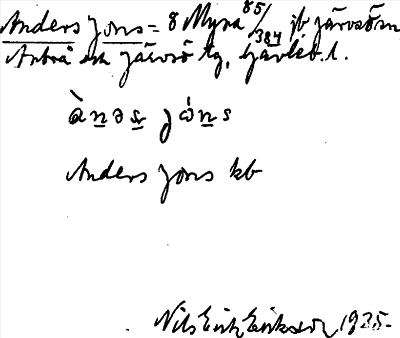 Anders Jons = 8 Myra 85/384 jb Järvsö sn
Arbrå och Järvsö tg, Gävleb. l.
ànəs jóns
Anders Jons kb
Nils Erik Eriksson 1925.